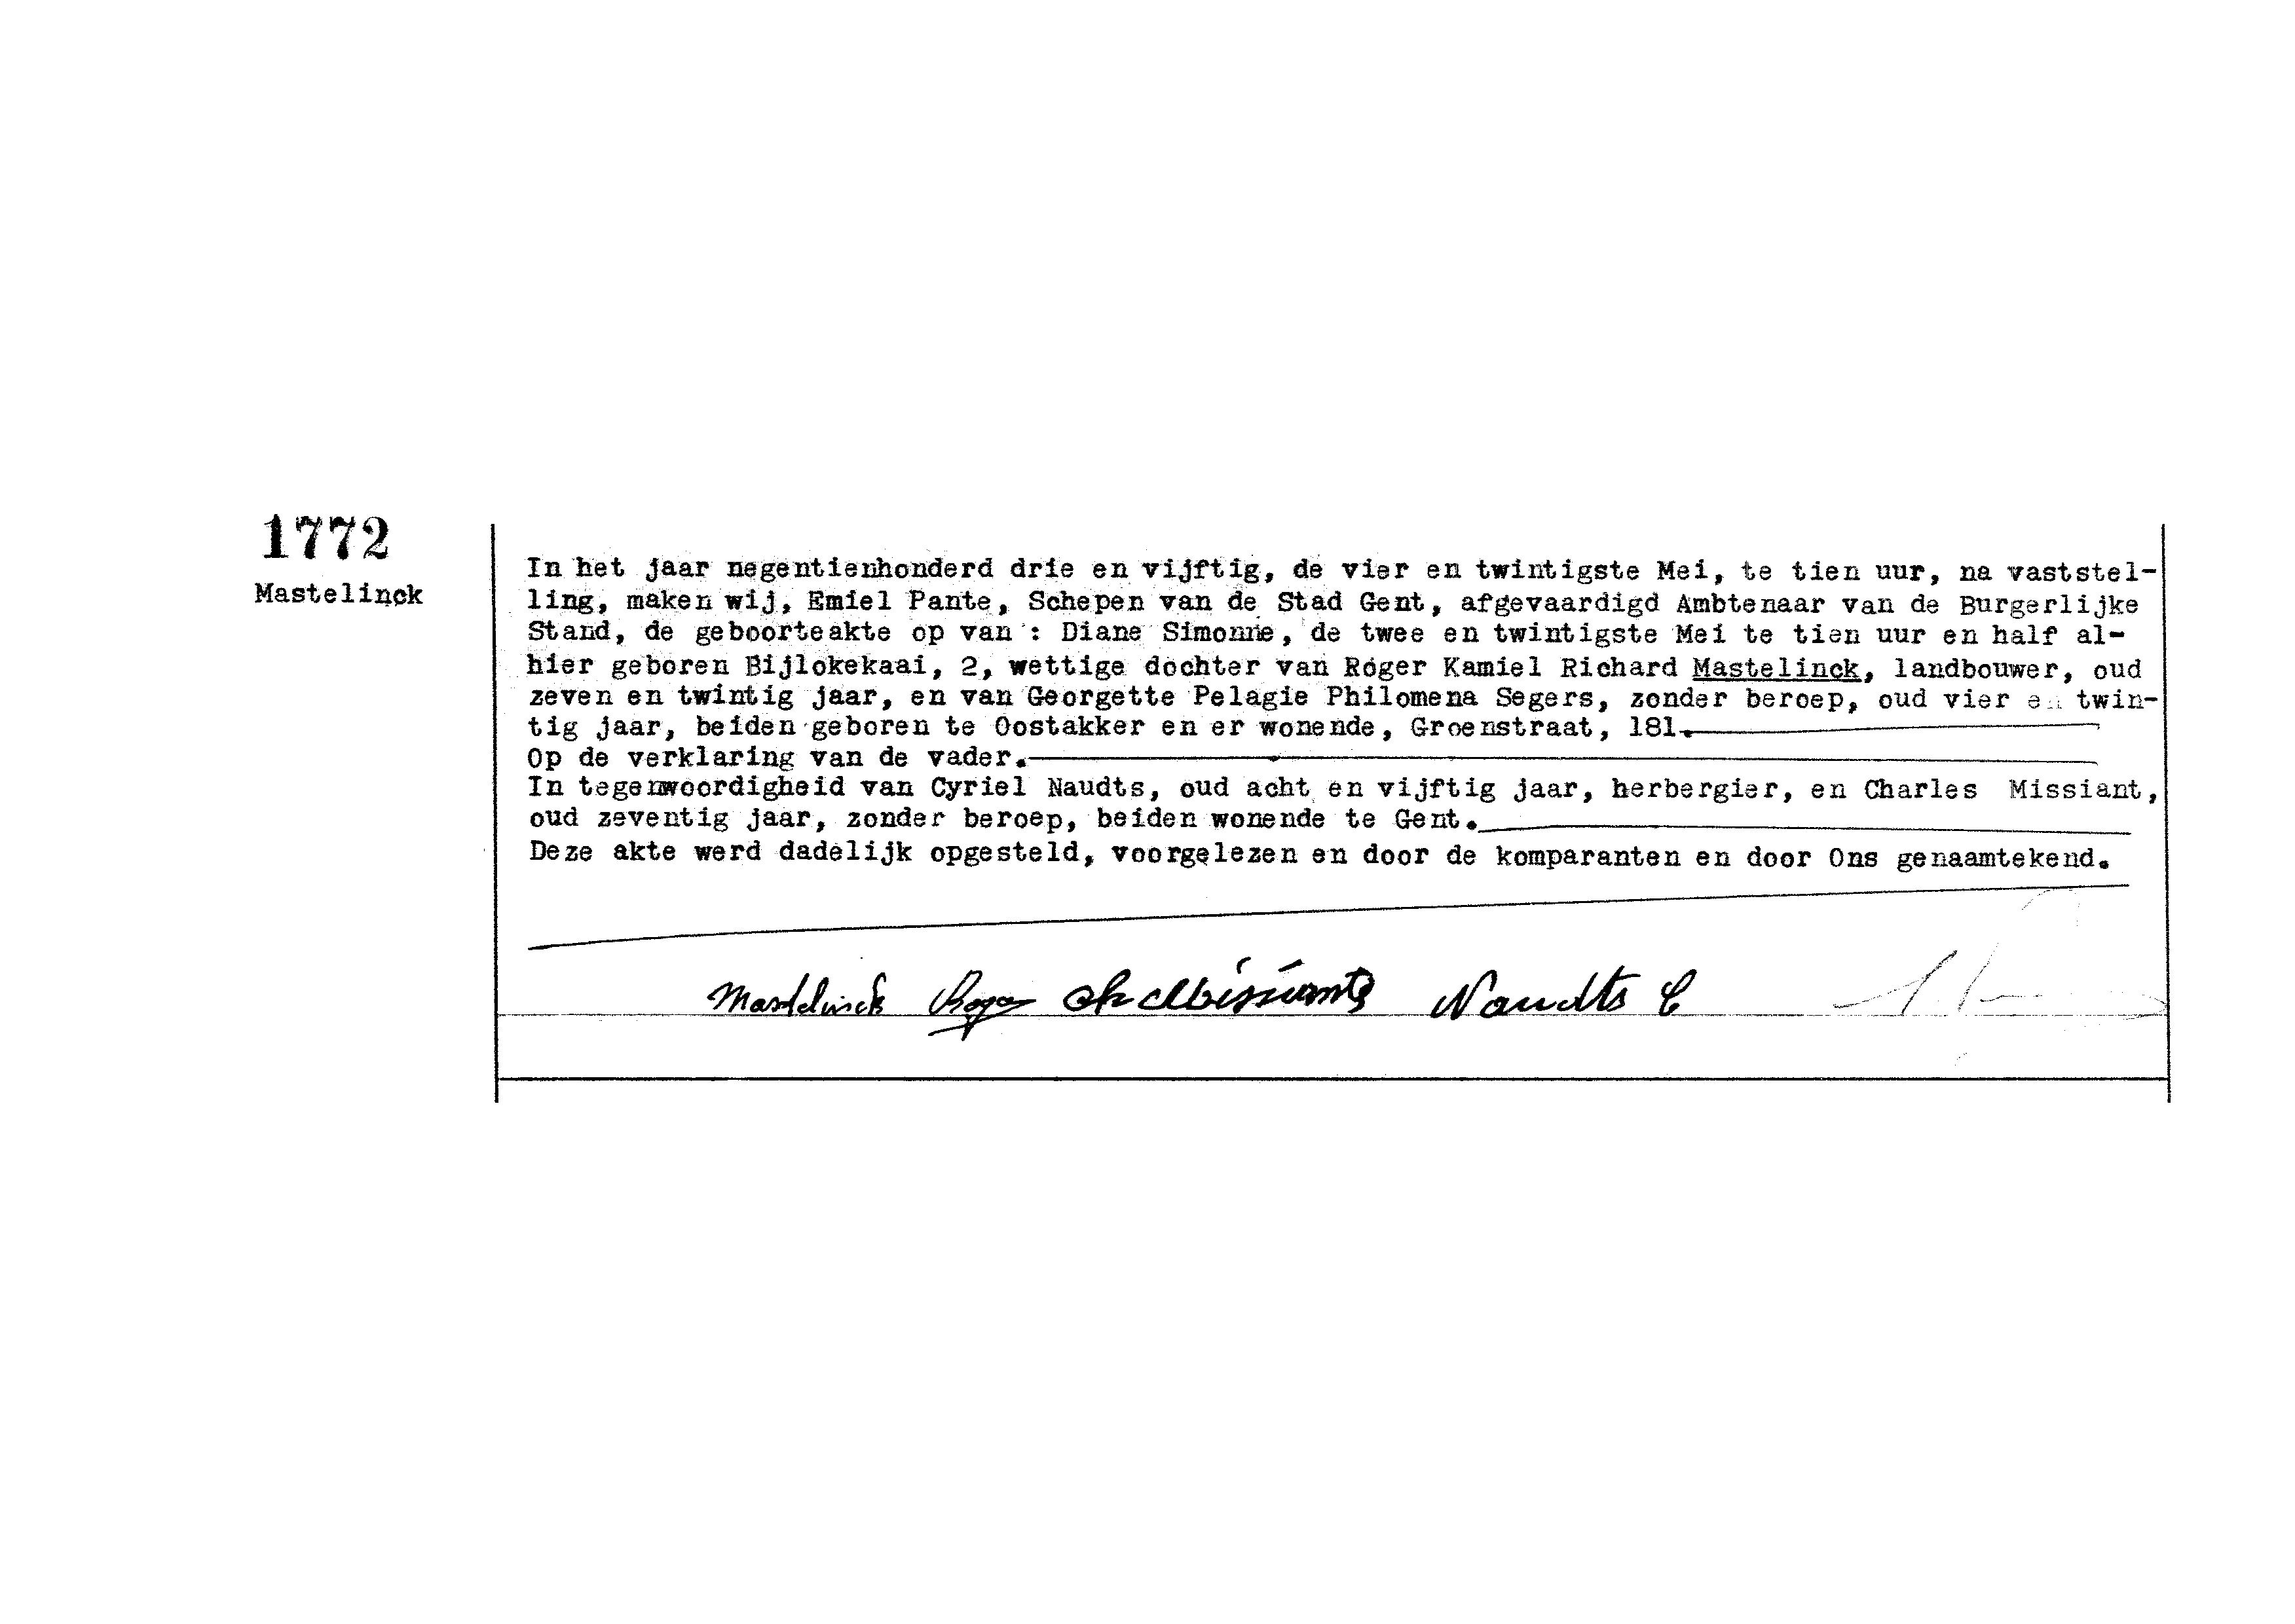 1772
Mastelinck
In het jaar negentienhonderd drie en vijftig, de vier en twintigste Mei, te tien uur, na vaststel-
ling, maken wij, Emiel Pante, Schepen van de Stad Gent, afgevaardigd Ambtenaar van de Burgerlijke
Stand, de geboorteakte op van : Diane Simonne, de twee en twintigste Mei te tien uur en half al-
hier geboren Bijlokekaai, 2, wettige dochter van Roger Kamiel Richard Mastelinck, landbouwer, oud
zeven en twintig jaar, en van Georgette Pelagie Philomena Segers, zonder beroep, oud vier en twin-
tig jaar, beiden geboren te Oostakker en er wonende, Groenstraat, 181.
Op de verklaring van de vader.
In tegenwoordigheid van Cyriel Naudts, oud acht en vijftig jaar, herbergier, en Charles Missiant,
oud zeventig jaar, zonder beroep, beiden wonende te Gent.
Deze akte werd dadelijk opgesteld, voorgelezen en door de komparanten en door Ons genaamtekend.
Mastelinck Roger Ch Missiant Naudts C